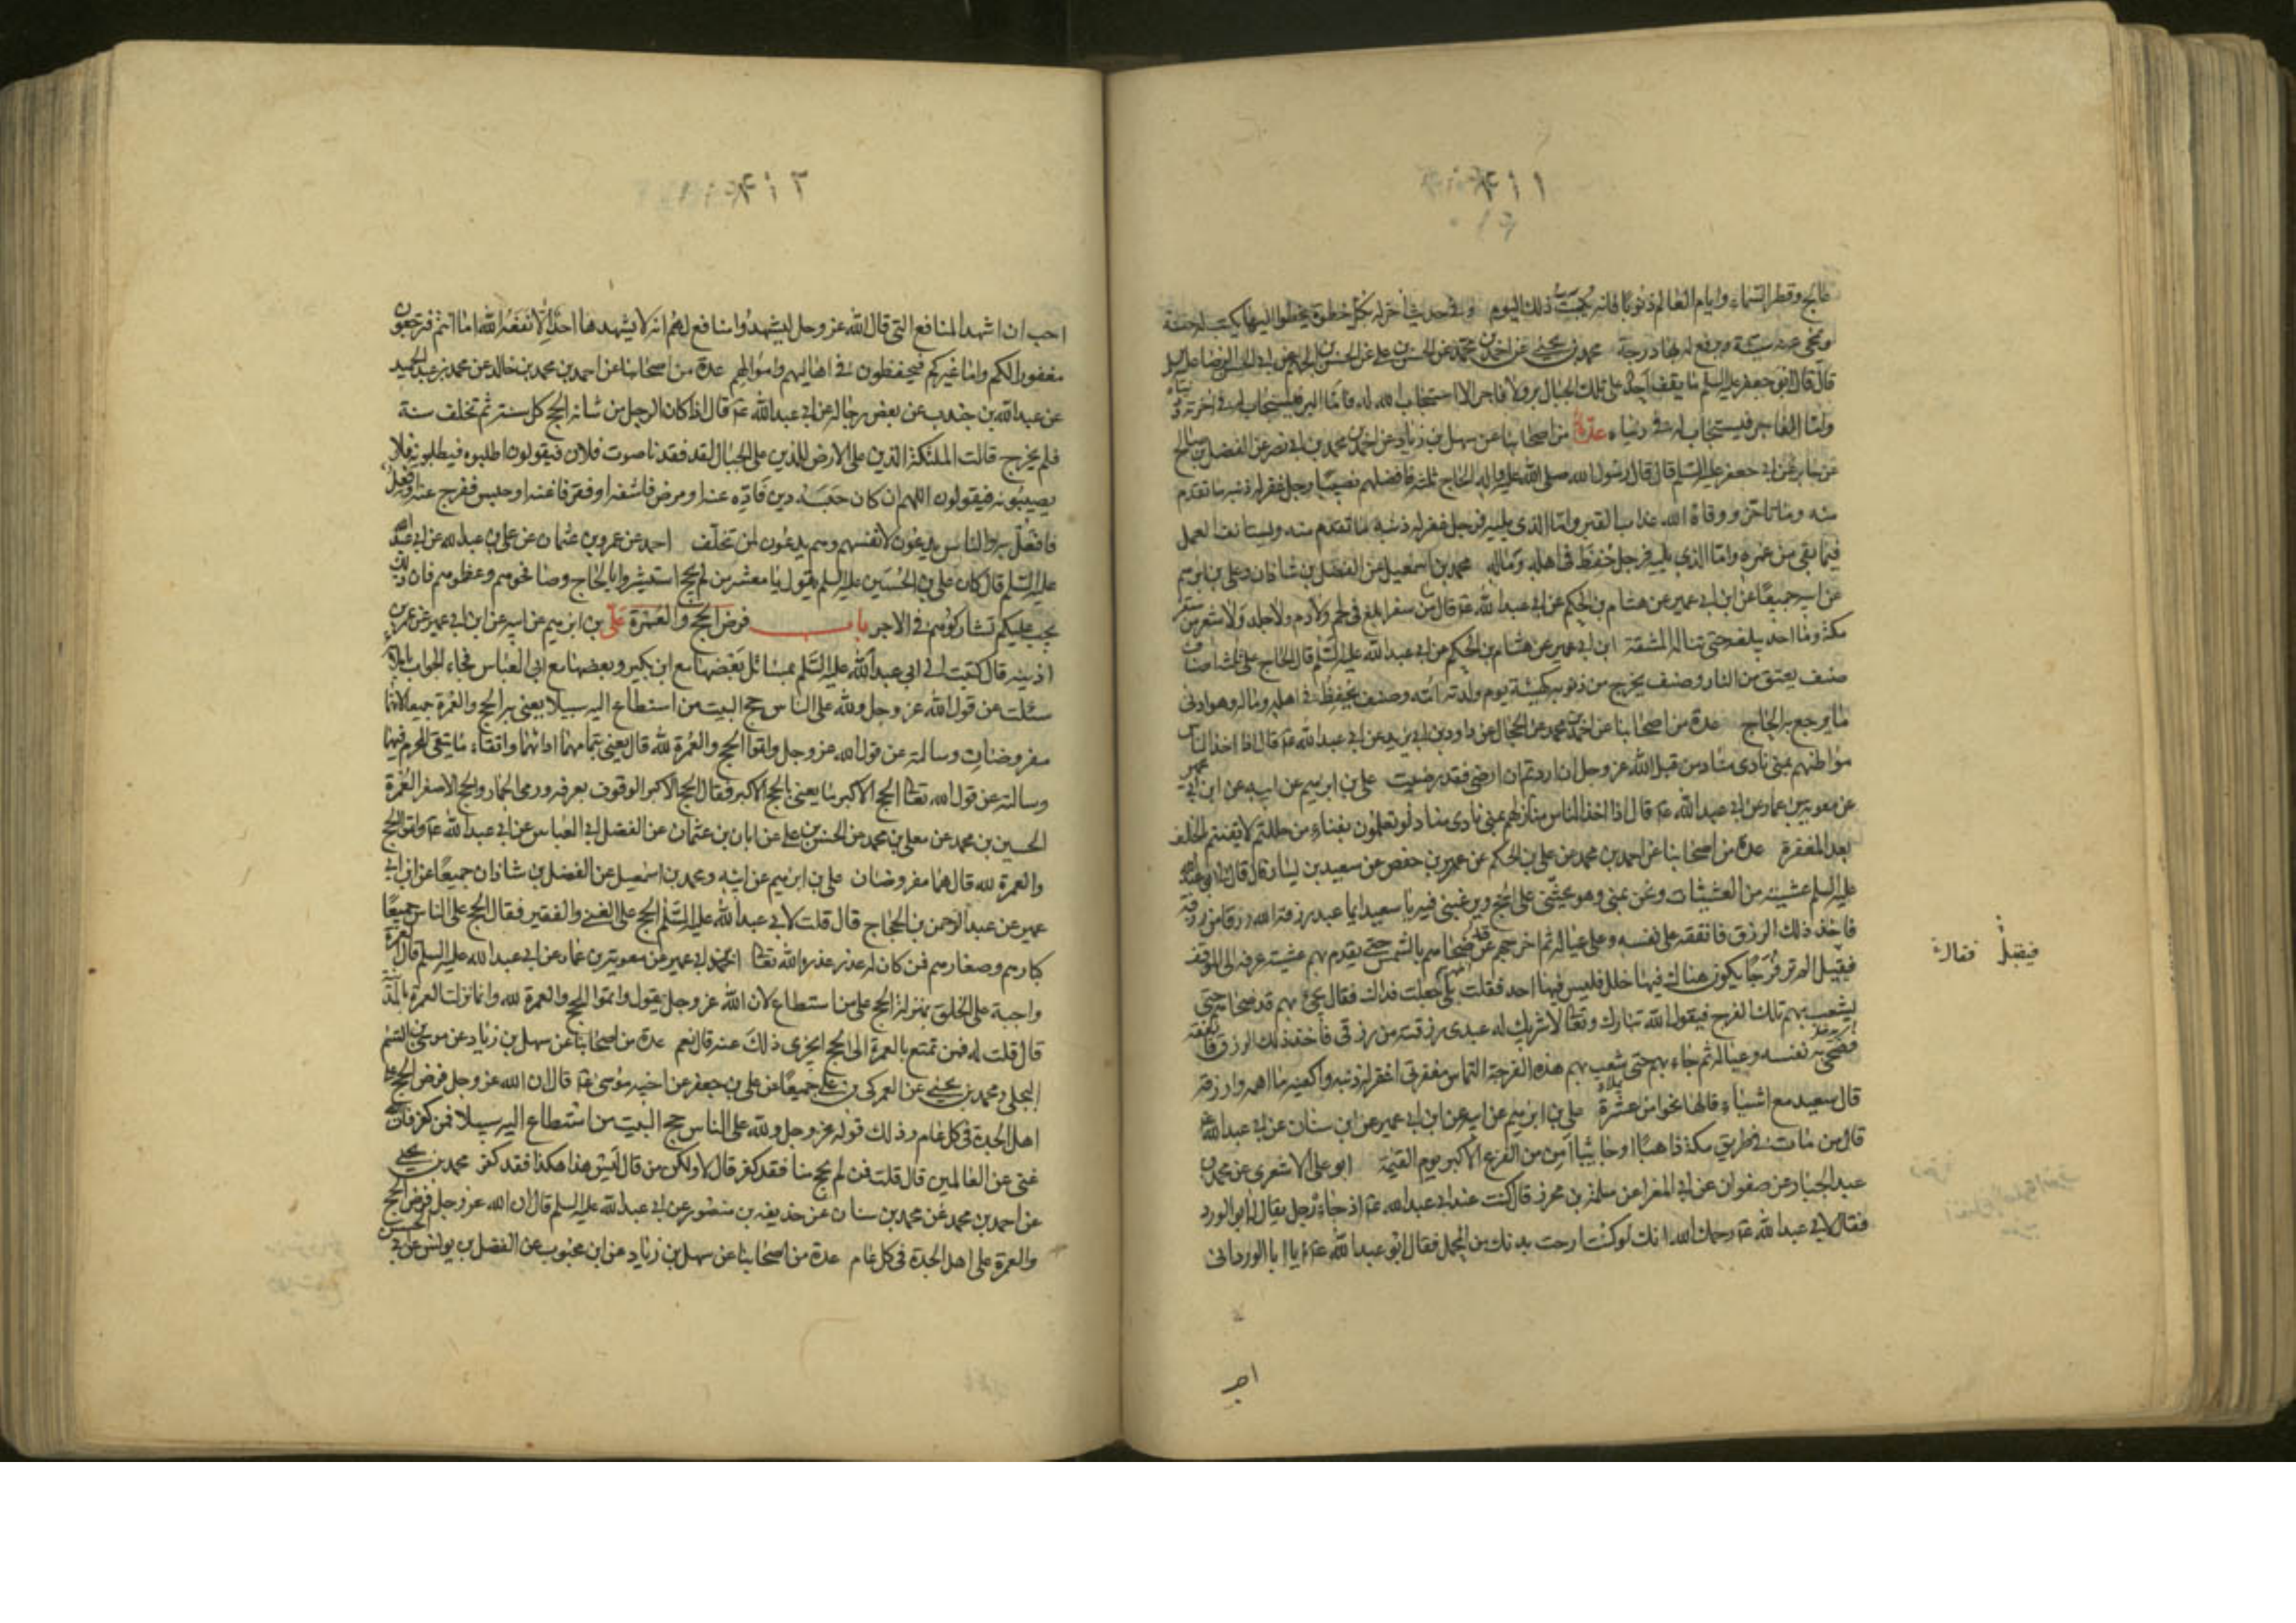 عالج وقطر السماء وايام العالم ذنوبا فانه ذلك اليوم وفى حديث اخر له بكل خطوة يخطوا اليها يكتب له حسنة
ويمحى عنه سيئة ويرفع له بها درجة محمد بن يحيى عن احمد بن محمد عن الحسن بن علي عن الحسن بن الجهم عن ابى الحسن الرضا عليه السلم
قال قال ابو جعفر عليه السلم ما يقف احد على تلك الجبال بر ولا فاجر الا استجاب الله له فاما البر فيستجاب له فى اخرته ودنياه
واما الفاجر فيستجاب له فى دنياه عدة من اصحابنا عن سهل بن زياد عن احمد بن محمد بن ابى نصر عن الفضل بن صالح
عن جابر عن ابى جعفر عليه السلم قال قال رسول الله صلى الله عليه واله الحاج ثلثة فافضلهم نصيبا رجل غفر له ذنبه ما تقدم
منه وما تاخر ووقاه الله عذاب القبر واما الذى يليه فرجل غفر له ذنبه ما تقدم منه وليستانف العمل
فيما بقى من عمره واما الذى يليه فرجل حفظ فى اهله وماله محمد بن اسمعيل عن الفضل بن شاذان وعلى بن ابرهيم
عن ابيه جميعا عن ابن ابى عمير عن هشام بن الحكم عن ابى عبد الله ع قال ما من سفر ابلغ فى لحم ولا دم ولا جلد ولا شعر من سفر
مكة وما احد يبلغه حتى تناله المشقة ابن ابى عمير عن هشام بن الحكم عن ابى عبد الله عليه السلم قال الحاج على ثلثة اصناف
صنف يعتق من النار وصنف يخرج من ذنوبه كهيئة يوم ولدته امه وصنف يحفظ فى اهله وماله وهو ادنى
ما يرجع به الحاج عدة من اصحابنا عن احمد بن محمد عن الحجال عن داود بن ابى يزيد عن ابى عبد الله ع قال اذا اخذ الناس
مواطنهم بمنى نادى مناد من قبل الله عز وجل ان اردتم ان ارضى فقد رضيت على بن ابرهيم عن ابيه عن ابن ابى عمير
عن معوية بن عمار عن ابى عبد الله ع قال اذا اخذ الناس منازلهم بمنى نادى مناد لو تعلمون بفناء من حللتم لايقنتم الخلف
بعد المغفرة عدة من اصحابنا عن احمد بن محمد عن على بن الحكم عن عمر بن حفص عن سعيد بن يسار قال قال لى ابو عبد الله
عليه السلم عشية من العشيات ونحن بمنى وهو يحثنى على الحج ويرغبنى فيه يا سعيد ايما عبد رزقه الله رزقا من رزقه
فاخذ ذلك الرزق فانفقه على نفسه وعلى عياله ثم اخرجهم قد ضحاهم بالشمس حتى يقدم بهم عشية عرفه الى الموقف
فيقيل الم تر فرجا يكون هناك فيها خلل فليس فيها احد فقلت بلى جعلت فداك فقال يجىء بهم قد ضحاهم حتى
يشعب بهم تلك الفرج فيقول الله تبارك وتعالى لا شريك له عبدى رزقته من رزقى فاخذ ذلك الرزق فانفقه
فضحى به نفسه وعياله ثم جاء بهم حتى شعب بهم هذه الفرجة التماس مغفرتى اغفر له ذنبه واكفيه ما اهمه وارزقه
قال سعيد مع اشياء قالها نحوا من عشرة على بن ابرهيم عن ابيه عن ابن ابى عمير عن ابن سنان عن ابى عبد الله ع
قال من مات فى طريق مكة ذاهبا او جائيا امن من الفزع الاكبر يوم القيمة ابو على الاشعرى عن محمد بن
عبد الجبار عن صفوان عن ابى المغرا عن سلمة بن محرز قال كنت عند ابى عبد الله ع اذ جاءه رجل يقال له ابو الورد
فقال لابى عبد الله ع رحمك الله انك لو كنت ارحت بدنك من المحمل فقال ابو عبد الله ع يا ابا الورد انى
فيقبل فقال
احب
احب ان اشهد المنافع التى قال الله عز وجل ليشهدوا منافع لهم انه لا يشهدها احد الا نفعه الله اما انتم فترجعون
مغفورا لكم واما غيركم فيحفظون فى اهاليهم واموالهم عدة من اصحابنا عن احمد بن محمد بن خالد عن محمد بن عبد الحميد
عن عبد الله بن جندب عن بعض رجاله عن ابى عبد الله ع قال اذا كان الرجل من شانه الحج كل سنة ثم تخلف سنة
فلم يخرج قالت الملئكة الذين على الارض للذين على الجبال لقد فقدنا صوت فلان فيقولون اطلبوه فيطلبونه فلا
يصيبونه فيقولون اللهم ان كان حبسه دين فاده عنه او مرض فاشفه او فقر فاغنه او حبس ففرج عنه او فعل
فافعل به والناس يدعون لانفسهم وهم يدعون لمن تخلف احمد عن عمرو بن عثمان عن على بن عبد الله عن ابى عبد الله
عليه السلم قال كان على بن الحسين عليه السلم يقول يا معشر من لم يحج استبشروا بالحاج وصافحوهم وعظموهم فان ذلك
يجب عليكم تشاركوهم فى الاجر باب فرض الحج والعمرة على بن ابرهيم عن ابيه عن ابن ابى عمير عن عمر بن
اذينه قال كتبت الى ابى عبد الله عليه السلم بمسائل بعضها مع ابن بكير وبعضها مع ابى العباس فجاء الجواب باملائه
سئلت عن قول الله عز وجل ولله على الناس حج البيت من استطاع اليه سبيلا يعنى به الحج والعمرة جميعا لانهما
مفروضات وسالته عن قول الله عز وجل واتموا الحج والعمرة لله قال يعنى بتمامهما اداءهما واتقاء ما يتقى المحرم فيهما
وسالته عن قول الله تعالى الحج الاكبر ما يعنى بالحج الاكبر فقال الحج الاكبر الوقوف بعرفه ورمى الجمار والحج الاصغر العمرة
الحسين بن محمد عن معلى بن محمد عن الحسن بن على عن ابان بن عثمان عن الفضل ابى العباس عن ابى عبد الله ع واتموا الحج
والعمرة لله قال هما مفروضان على بن ابرهيم عن ابيه ومحمد بن اسمعيل عن الفضل بن شاذان جميعا عن ابن ابى
عمير عن عبد الرحمن بن الحجاج قال قلت لابى عبد الله عليه السلم الحج على الغنى والفقير فقال الحج على الناس جميعا
كبارهم وصغارهم فمن كان له عذر عذره الله تعالى ابن ابى عمير عن معوية بن عمار عن ابى عبد الله عليه السلم قال العمرة
واجبة على الخلق بمنزلة الحج على من استطاع لان الله عز وجل يقول واتموا الحج والعمرة لله وانما نزلت العمرة بالمدينة
قال قلت له فمن تمتع بالعمرة الى الحج ايجزى ذلك عنه قال نعم عدة من اصحابنا عن سهل بن زياد عن موسى بن القسم
البجلى ومحمد بن يحيى عن العمركى بن على جميعا عن على بن جعفر عن اخيه موسى ع قال ان الله عز وجل فرض الحج على
اهل الجدة فى كل عام وذلك قوله عز وجل ولله على الناس حج البيت من استطاع اليه سبيلا فمن كفر فان الله
غنى عن العالمين قال قلت فمن لم يحج منا فقد كفر قال لا ولكن من قال ليس هذا هكذا فقد كفر محمد بن يحيى
عن احمد بن محمد عن محمد بن سنان عن حذيفه بن منصور عن ابى عبد الله عليه السلم قال ان الله عز وجل فرض الحج
والعمرة على اهل الجدة فى كل عام عدة من اصحابنا عن سهل بن زياد عن ابن محبوب عن الفضل بن يونس عن ابى الحسن